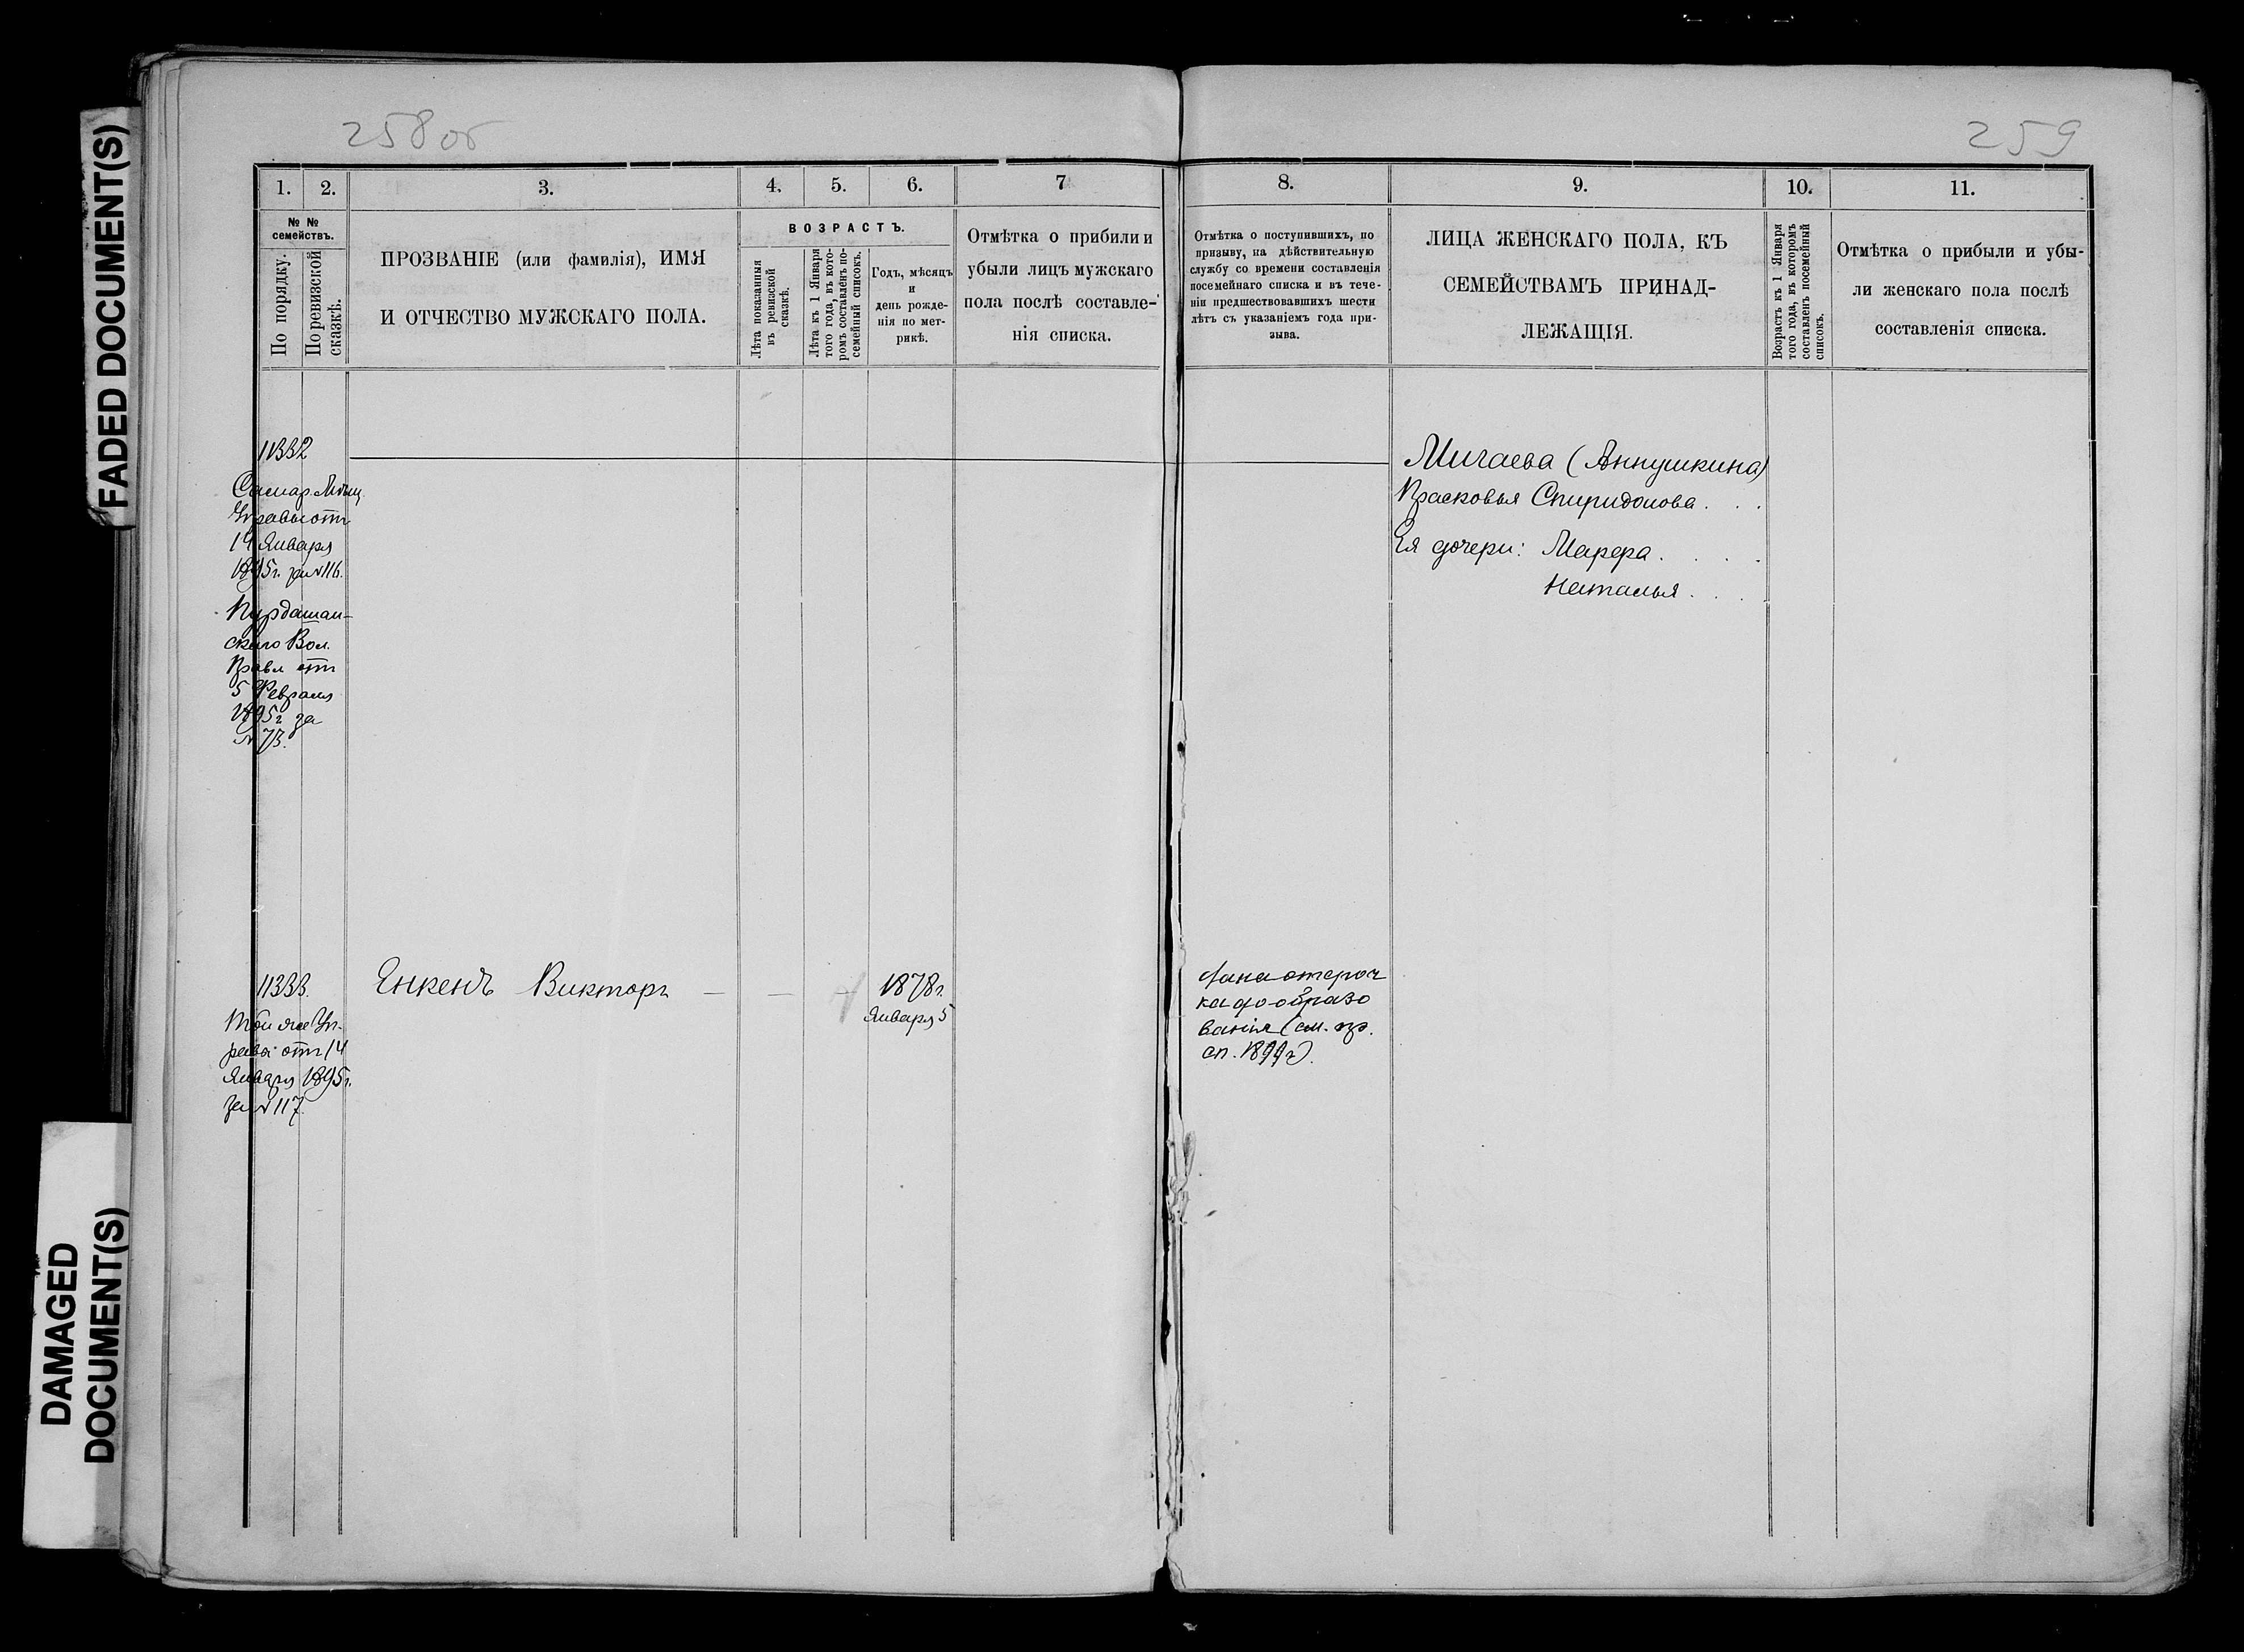 FADED DOCUMENT(S)
DAMAGED
DOCUMENT(S)
258 об
259
1. 2. 3. 4. 5. 6. 7
№ №
семействъ.
По порядку.
По ревизской
сказкѣ.
ПРОЗВАНІЕ (или фамилія), ИМЯ
И ОТЧЕСТВО МУЖСКАГО ПОЛА.
ВОЗРАСТЪ.
Лѣта показанныя
въ ревизской
сказкѣ.
Лѣта къ 1 Января
того года, въ кото-
ромъ составленъ по-
семейный списокъ.
Годъ, мѣсяцъ
и
день рожде-
нія по мет-
рикѣ.
Отмѣтка о прибили и
убыли лицъ мужскаго
пола послѣ составле-
нія списка.
8. 9. 10. 11.
Отмѣтка о поступившихъ, по
призыву, на дѣйствительную
службу со времени составленія
посемейнаго списка и въ тече-
ніи предшествовавшихъ шести
лѣтъ съ указаніемъ года при-
зыва.
ЛИЦА ЖЕНСКАГО ПОЛА, КЪ
СЕМЕЙСТВАМЪ ПРИНАД-
ЛЕЖАЩІЯ.
Возрастъ къ 1 Января
того года, въ которомъ
составленъ посемейный
списокъ.
Отмѣтка о прибыли и убы-
ли женскаго пола послѣ
составленія списка.
11332
Самар. Мѣщ.
Управы отъ
14 Января
1895г. за № 116.
Пурдашан-
скаго Вол.
Правл отъ
5 Февраля
1895г за
№ 73.
Мигаева (Аннушкина)
Прасковья Спиридонова . . .
Ея дочери: Марфа . . . .
Наталья . . .
11333.
Той же Уп-
равы отъ 14
Января 1895г.
за № 117.
Енкенъ Викторъ — — —
1878г.
Января 5
Дана отсроч
ка до образо
ванія (см. пр.
сп. 1899г).